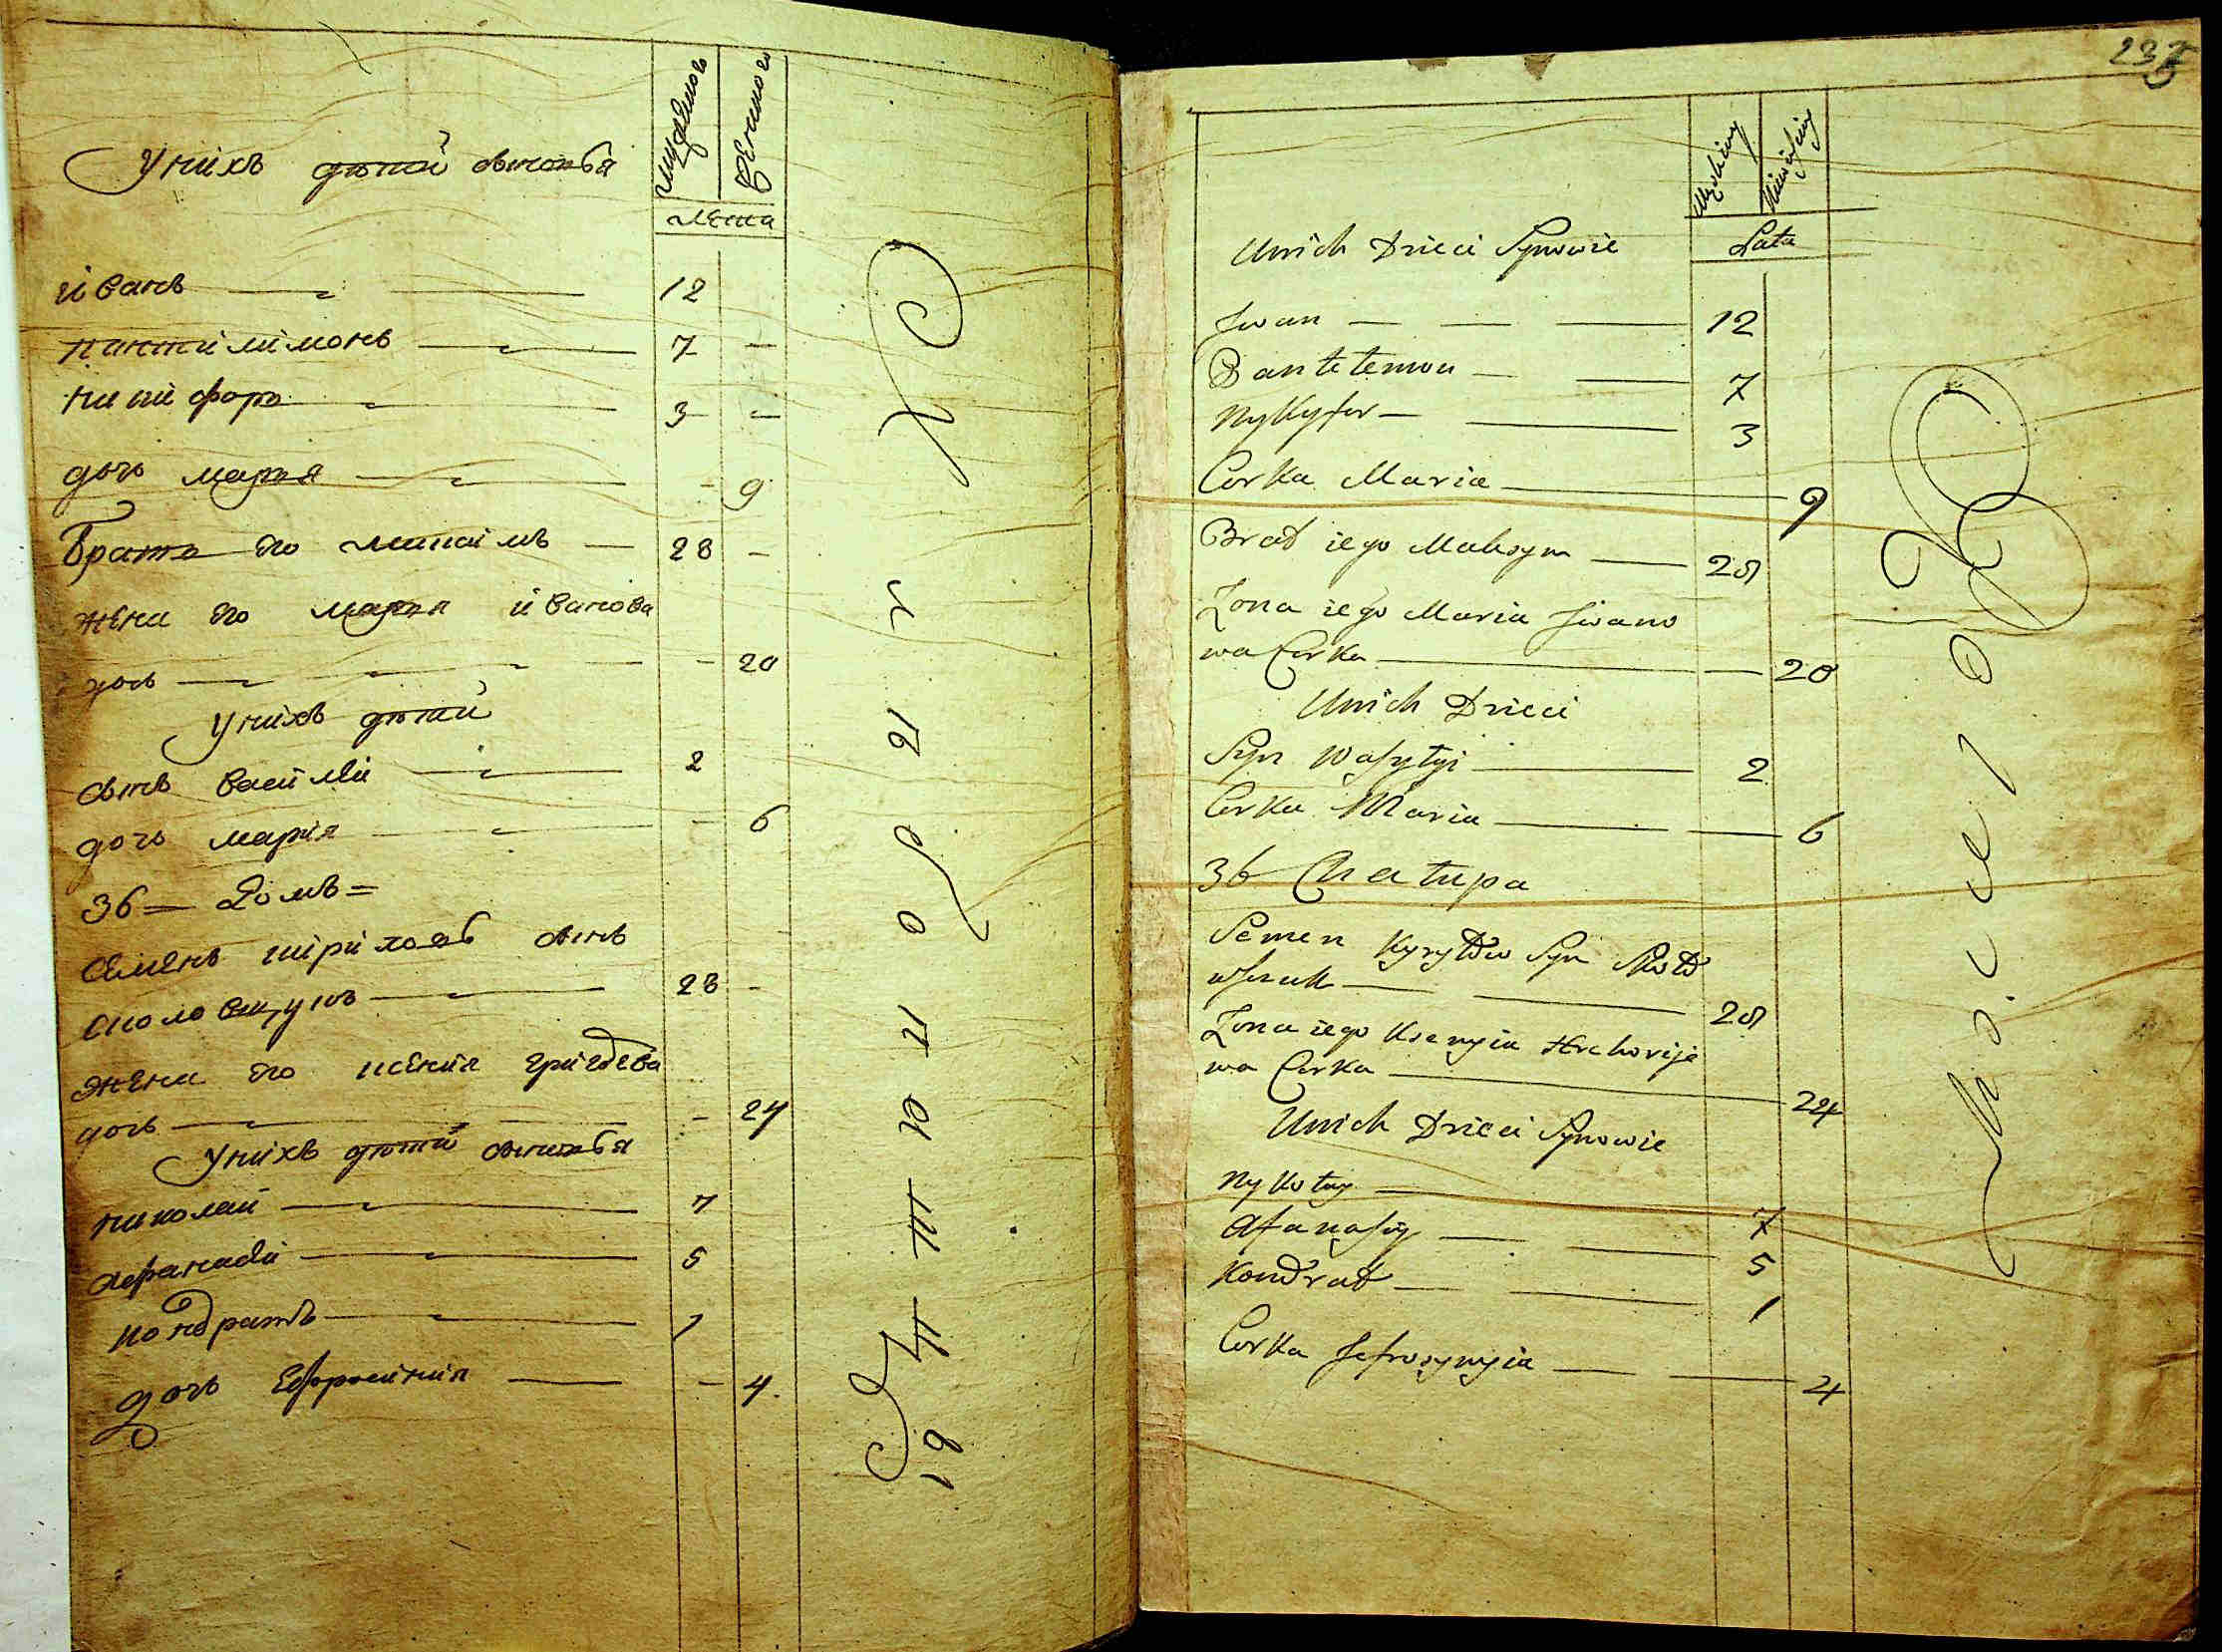 мужеского
женского
лета
у нихъ детей сыновья
иванъ 12
пантилимонъ 7 —
никифоръ 3 —
дочь марья - 9
Братъ его максимъ — 28 —
жена его марья иванова
дочь - 20
у нихъ детей
сынъ василий 2
дочь мария - 6
36 = Домъ =
семенъ кириловъ сынъ
сколовчукъ 28 -
жена его ксения григорева
дочь - 24
у нихъ детей сыновья
николай 7
афанасий 5
кондратъ 1
дочь Ефросиния - 4
235
Męskiey
Lata
Unich Dzieci Synowie
Jwan 12
Pantełemon 7
Nykyfor 3
Corka Maria 9
Brat iego Maksym 28
Żona iego Maria Jwano
wa Corka 20
Unich Dzieci
Syn Wasylyi 2
Corka Maria 6
36 Chatupa
Semen Kyryłow Syn Skoło
wczuk 28
Żona iego Ksenyia Hrehorije
wa Corka 24
Unich Dzieci Synowie
Nykołay 7
Afanasy 5
Kondrat 1
Corka Jefrosynyia 4